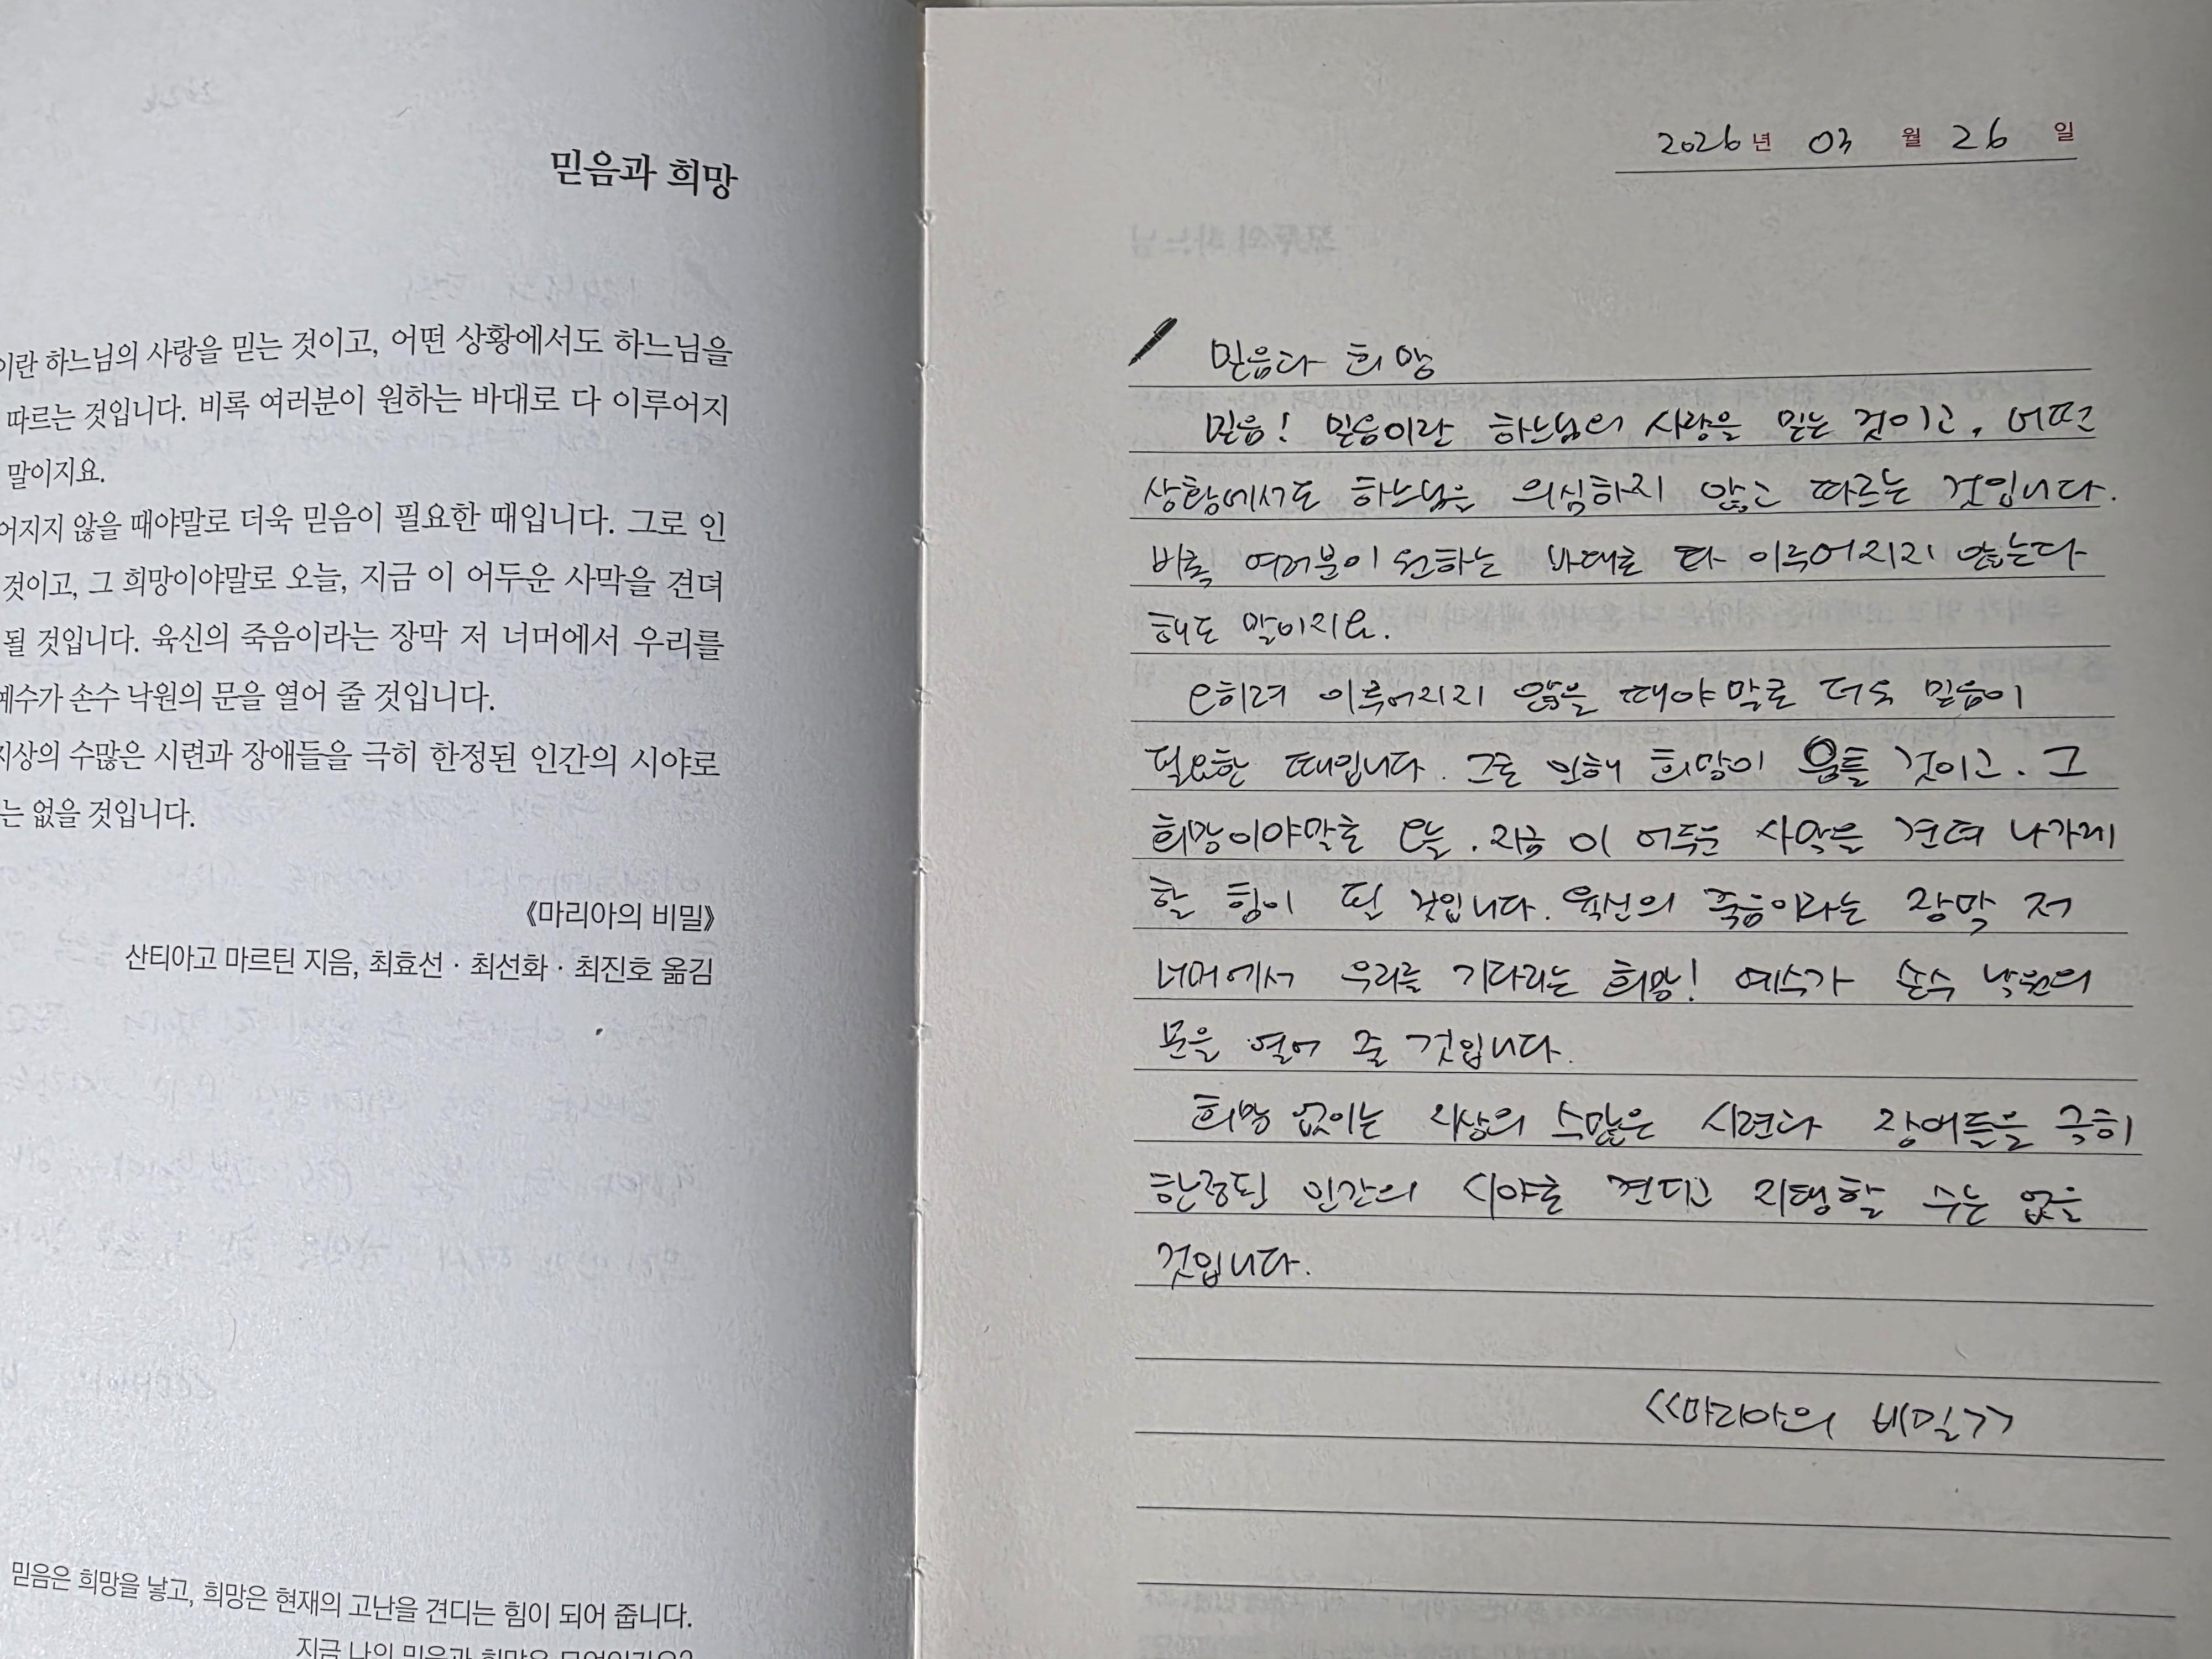 믿음과 희망
이란 하느님의 사랑을 믿는 것이고, 어떤 상황에서도 하느님을
따르는 것입니다. 비록 여러분이 원하는 바대로 다 이루어지
말이지요.
어지지 않을 때야말로 더욱 믿음이 필요한 때입니다. 그로 인
것이고, 그 희망이야말로 오늘, 지금 이 어두운 사막을 견뎌
될 것입니다. 육신의 죽음이라는 장막 저 너머에서 우리를
예수가 손수 낙원의 문을 열어 줄 것입니다.
지상의 수많은 시련과 장애들을 극히 한정된 인간의 시야로
는 없을 것입니다.
《마리아의 비밀》
산티아고 마르틴 지음, 최효선 · 최선화 · 최진호 옮김
믿음은 희망을 낳고, 희망은 현재의 고난을 견디는 힘이 되어 줍니다.
지금 나의 믿음과 희망은 무엇인가요?
2026년 03월 26일
믿음과 희망
믿음! 믿음이란 하느님의 사랑을 믿는 것이고, 어떤
상황에서도 하느님을 의심하지 않고 따르는 것입니다.
비록 여러분이 원하는 바대로 다 이루어지지 않는다
해도 말이지요.
오히려 이루어지지 않을 때야말로 더욱 믿음이
필요한 때입니다. 그로 인해 희망이 움틀 것이고, 그
희망이야말로 오늘, 지금 이 어두운 사막을 견뎌 나가게
할 힘이 될 것입니다. 육신의 죽음이라는 장막 저
너머에서 우리를 기다리는 희망! 예수가 손수 낙원의
문을 열어 줄 것입니다.
희망 없이는 지상의 수많은 시련과 장애들을 극히
한정된 인간의 시야로 견디고 지탱할 수는 없을
것입니다.
<<마리아의 비밀>>